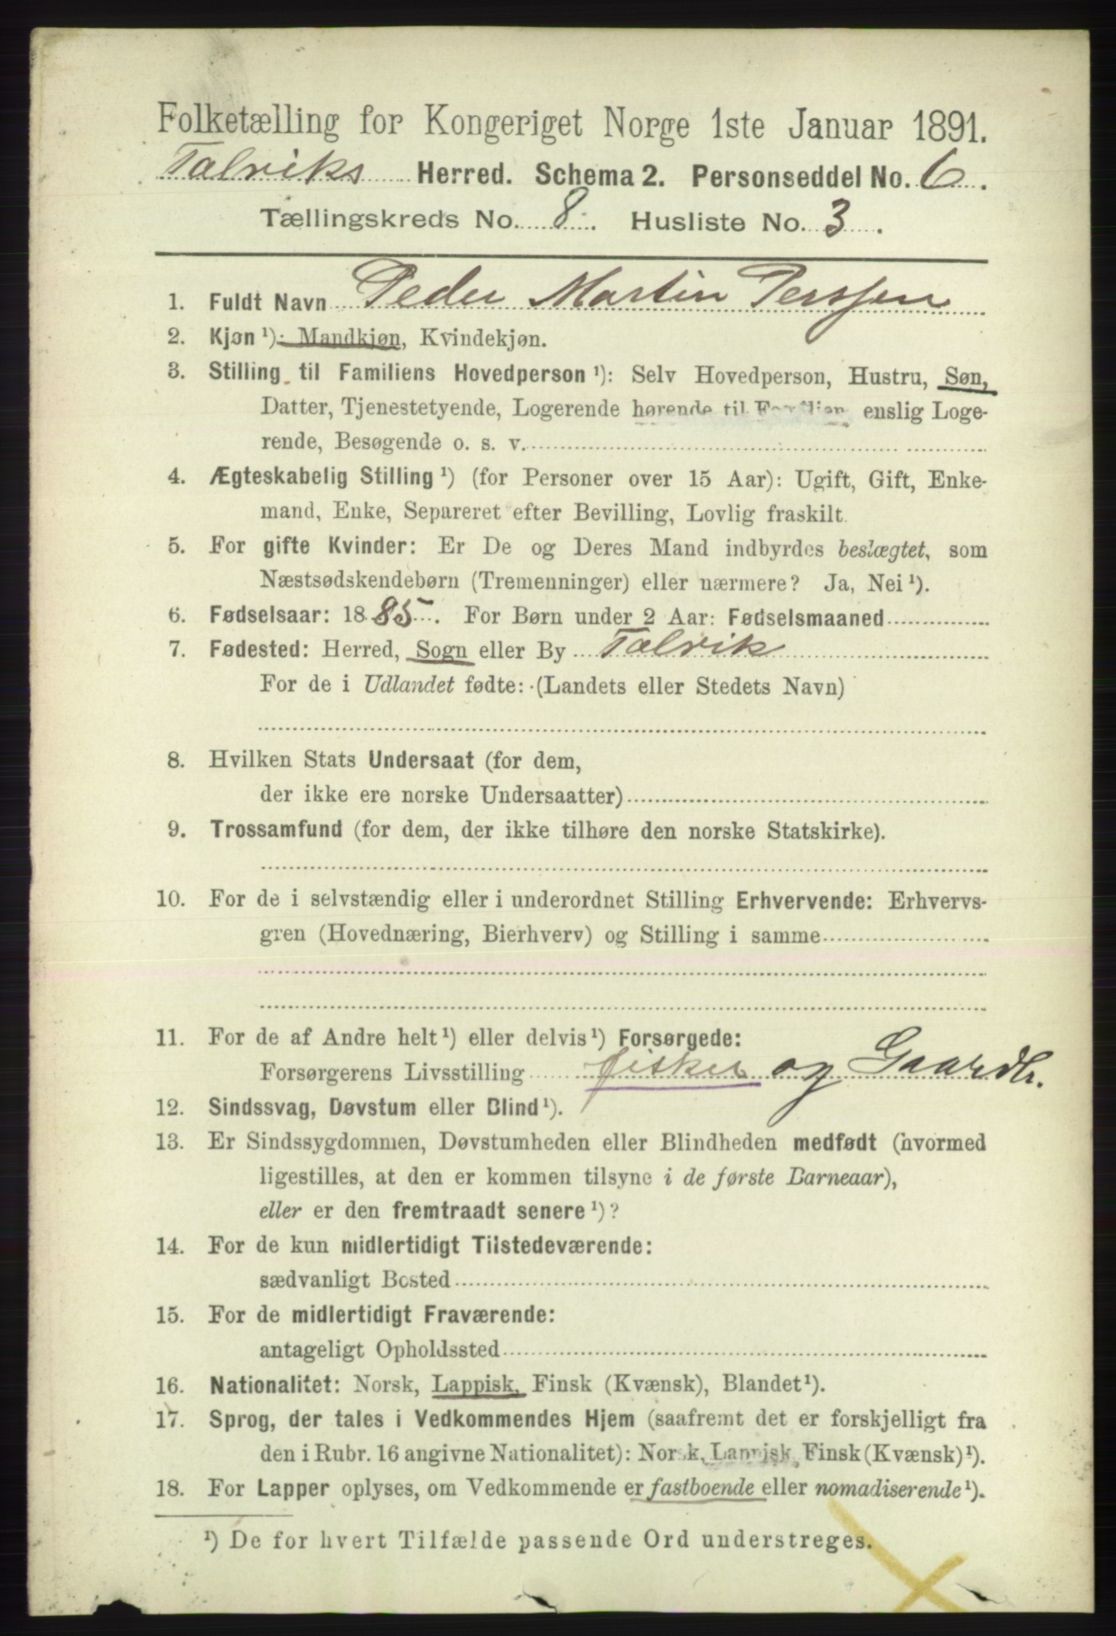 Folketælling for Kongeriget Norge 1ste Januar 1891.
Talviks Herred. Schema 2. Personseddel No. 6.
Tællingskreds No. 8. Husliste No. 3.
1. Fuldt Navn Peder Martin Perssen
2. Kjøn ¹): Mandkjøn, Kvindekjøn.
3. Stilling til Familiens Hovedperson ¹): Selv Hovedperson, Hustru, Søn,
Datter, Tjenestetyende, Logerende hørende til Familien, enslig Loge-
rende, Besøgende o. s. v.
4. Ægteskabelig Stilling ¹) (for Personer over 15 Aar): Ugift, Gift, Enke-
mand, Enke, Separeret efter Bevilling, Lovlig fraskilt
5. For gifte Kvinder: Er De og Deres Mand indbyrdes beslægtet, som
Næstsødskendebørn (Tremenninger) eller nærmere? Ja, Nei ¹).
6. Fødselsaar: 1885. For Børn under 2 Aar: Fødselsmaaned
7. Fødested: Herred, Sogn eller By Talvik
For de i Udlandet fødte: (Landets eller Stedets Navn)
8. Hvilken Stats Undersaat (for dem,
der ikke ere norske Undersaatter)
9. Trossamfund (for dem, der ikke tilhøre den norske Statskirke).
10. For de i selvstændig eller i underordnet Stilling Erhvervende: Erhvervs-
gren (Hovednæring, Bierhverv) og Stilling i samme
11. For de af Andre helt ¹) eller delvis ¹) Forsørgede:
Forsørgerens Livsstilling fisker og Gaardbr.
12. Sindssvag, Døvstum eller Blind ¹).
13. Er Sindssygdommen, Døvstumheden eller Blindheden medfødt (hvormed
ligestilles, at den er kommen tilsyne i de første Barneaar),
eller er den fremtraadt senere ¹)?
14. For de kun midlertidigt Tilstedeværende:
sædvanligt Bosted
15. For de midlertidigt Fraværende:
antageligt Opholdssted
16. Nationalitet: Norsk, Lappisk, Finsk (Kvænsk), Blandet ¹).
17. Sprog, der tales i Vedkommendes Hjem (saafremt det er forskjelligt fra
den i Rubr. 16 angivne Nationalitet): Norsk, Lappisk, Finsk (Kvænsk) ¹).
18. For Lapper oplyses, om Vedkommende er fastboende eller nomadiserende ¹).
¹) De for hvert Tilfælde passende Ord understreges.